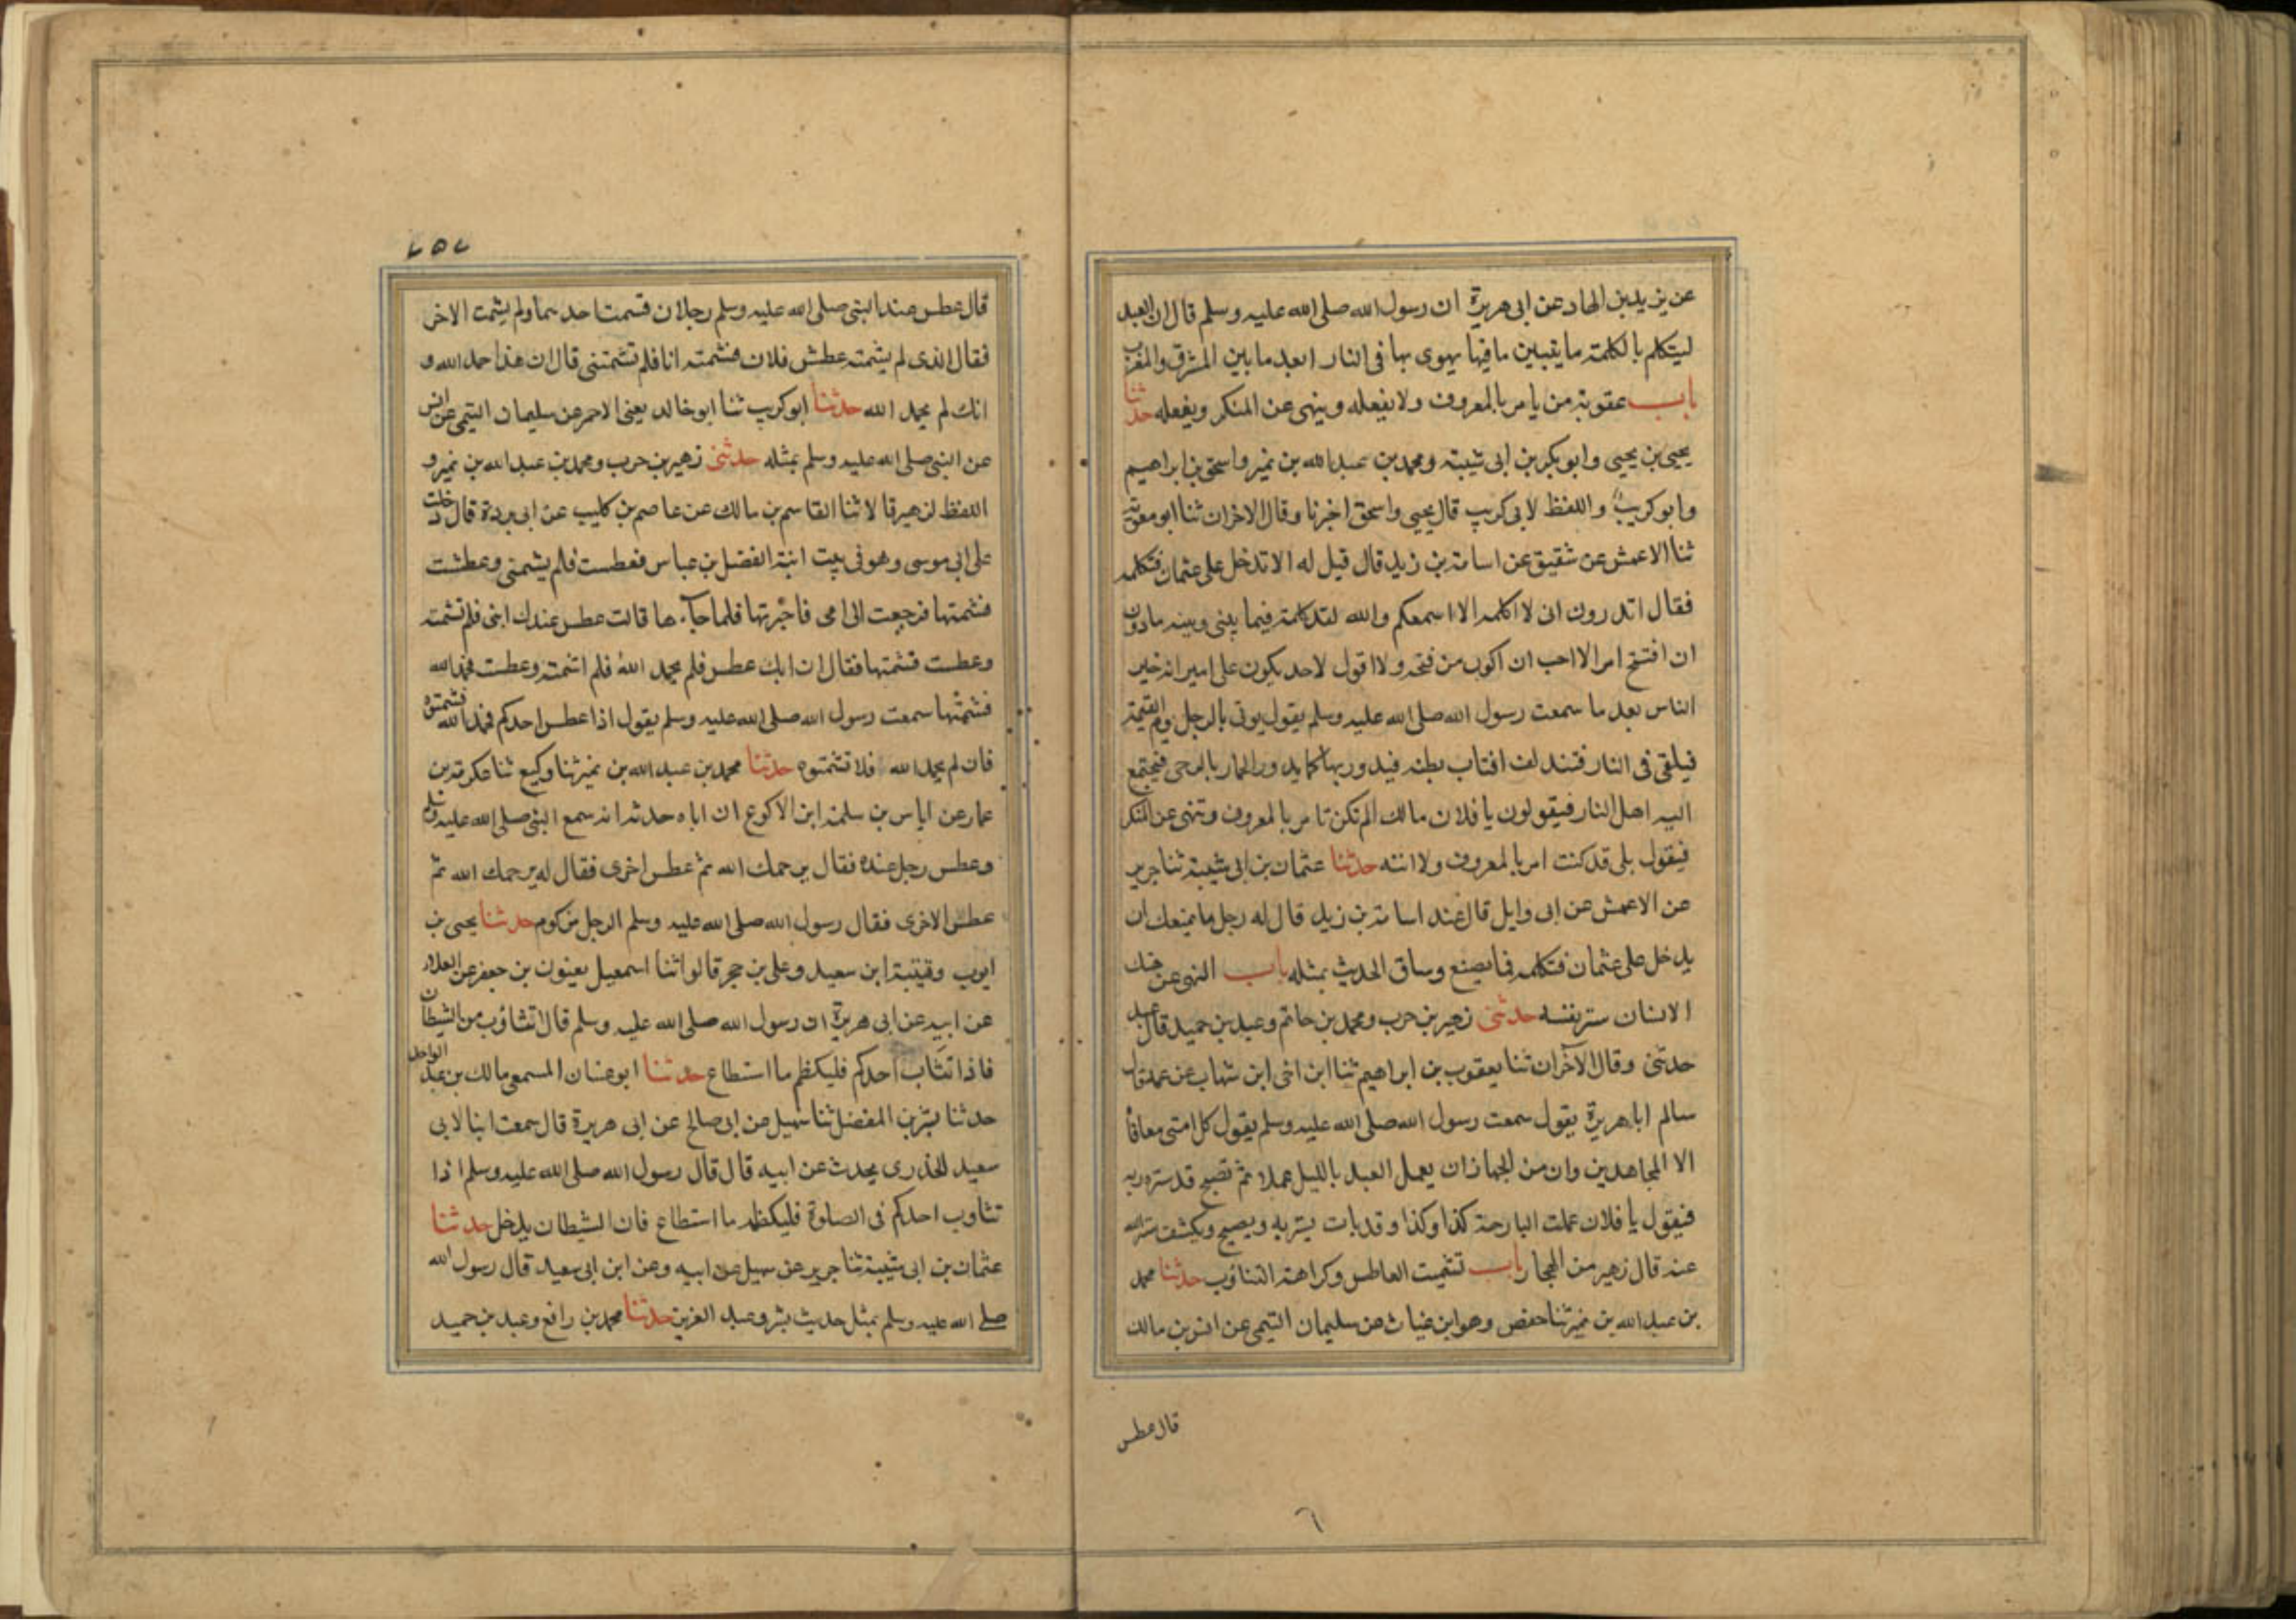 عن يزيد بن الهاد عن ابى هريرة ان رسول الله صلى الله عليه وسلم قال ان العبد
ليتكلم بالكلمة ما يتبين ما فيها يهوى بها فى النار ابعد ما بين المشرق والمغرب
باب عقوبة من يامر بالمعروف ولا يفعله وينهى عن المنكر ويفعله حدثنا
يحيى بن يحيى وابو بكر بن ابى شيبة ومحمد بن عبد الله بن نمير واسحق بن ابراهيم
وابو كريب واللفظ لابى كريب قال يحيى واسحق اخبرنا وقال الاخران ثنا ابو معوية
ثنا الاعمش عن شقيق عن اسامة بن زيد قال قيل له الا تدخل على عثمان فتكلمه
فقال اتدرون انى لا اكلمه الا اسمعكم والله لقد كلمته فيما بينى وبينه ما دون
ان افتتح امرا لا احب ان اكون من فتحه ولا اقول لاحد يكون على امير انه خير
الناس بعد ما سمعت رسول الله صلى الله عليه وسلم يقول يوتى بالرجل يوم القيمة
فيلقى فى النار فتندلق اقتاب بطنه فيدور بها كما يدور الحمار بالرحى فيجتمع
اليه اهل النار فيقولون يا فلان مالك الم تكن تامر بالمعروف وتنهى عن المنكر
فيقول بلى قد كنت امر بالمعروف ولا انته حدثنا عثمان بن ابى شيبة ثنا جرير
عن الاعمش عن ابى وايل قال عند اسامة بن زيد قال له رجل ما يمنعك ان
يدخل على عثمان فتكلمه فيما يصنع وساق الحديث بمثله باب النهى عن هتك
الانسان ستر نفسه حدثنى زهير بن حرب ومحمد بن حاتم وعبد بن حميد قال عبد
حدثنى وقال الآخران ثنا يعقوب بن ابراهيم ثنا ابن اخى ابن شهاب عن عمه قال
سالم ابا هريرة يقول سمعت رسول الله صلى الله عليه وسلم يقول كل امتى معافاة
الا المجاهدين وان من الجهار ان يعمل العبد بالليل عملا ثم تصبح قد ستره ربه
فيقول يا فلان عملت البارحة كذا وكذا وقد بات يستر به ويصبح ويكشف ستر الله
عنه قال زهير من الهجار باب تشميت العاطس وكراهة التثاؤب حدثنا محمد
بن عبد الله بن نمير ثنا حفص وهو ابن غياث عن سليمان التيمى عن انس بن مالك
قال عطس
٦
٢٥٢
قال عطس عند النبى صلى الله عليه وسلم رجلان فشمت احدهما ولم يشمت الاخر
فقال الذى لم يشمته عطش فلان فشمته انا فلم تشمتنى قال ان هذا حمد الله و
انك لم يحمد الله حدثنا ابو كريب ثنا ابو خالد يعنى الاحمر عن سليمان التيمى عن انس
عن النبى صلى الله عليه وسلم بمثله حدثنى زهير بن حرب ومحمد بن عبد الله بن نمير و
اللفظ لزهير قالا ثنا القاسم بن مالك عن عاصم بن كليب عن ابى بردة قال دخلت
على ابى موسى وهو فى بيت ابنة الفضل بن عباس فعطست فلم يشمتنى وعطشت
فشمتها فرجعت الى امى فاخبرتها فلما جآءها قالت عطس عندك ابنى فلم تشمته
وعطست فشمتها فقال ان ابنك عطس فلم يحمد الله فلم اشمته وعطست فحمد الله
فشمتها سمعت رسول الله صلى الله عليه وسلم يقول اذا عطس احدكم فحمد الله فشمتوه
فان لم يحمد الله فلا تشمتوه حدثنا محمد بن عبد الله بن نمير ثنا وكيع ثنا عكرمة بن
عمار عن اياس بن سلمة ابن الاكوع ان اباه حدثه انه سمع النبى صلى الله عليه وسلم
وعطس رجل عنده فقال يرحمك الله ثم عطس اخرى فقال له يرحمك الله ثم
عطس الاخرى فقال رسول الله صلى الله عليه وسلم الرجل مزكوم حدثنا يحيى بن
ايوب وقتيبة ابن سعيد وعلى بن حجر قالوا ثنا اسمعيل يعنون بن جعفر عن العلاء
عن ابيه عن ابى هريرة ان رسول الله صلى الله عليه وسلم قال التثاؤب من الشيطان
فاذا تثاب احدكم فليكظم ما استطاع حدثنا ابو غسان المسمعى مالك بن عبد الواحد
حدثنا بشر بن المفضل ثنا سهيل عن ابى صالح عن ابى هريرة قال سمعت ابنا لابى
سعيد الخذرى يحدث عن ابيه قال قال رسول الله صلى الله عليه وسلم اذا
تثاوب احدكم فى الصلوة فليكظم ما استطاع فان الشيطان يدخل حدثنا
عثمان بن ابى شيبة ثنا جرير عن سهيل عن ابيه وعن ابن ابى سعيد قال رسول الله
صلى الله عليه وسلم بمثل حديث بشر وعبد العزيز حدثنا محمد بن رافع وعبد بن حميد